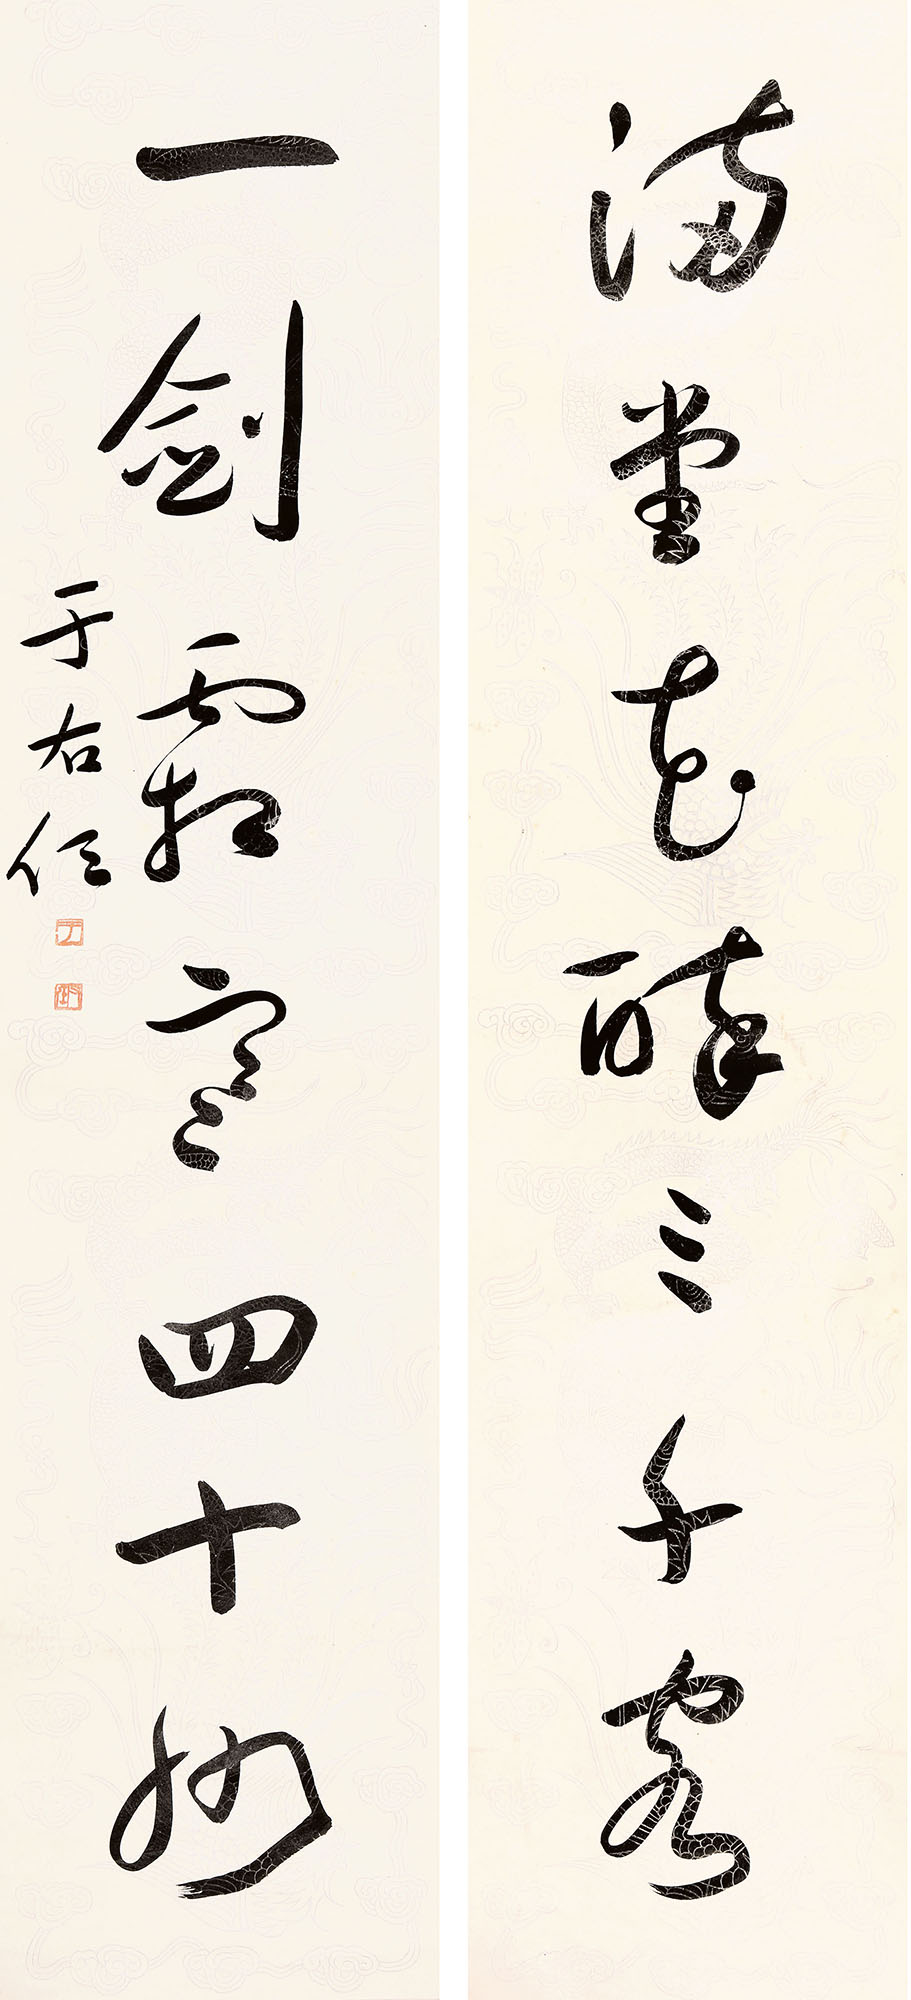 滿堂花醉三千客
一劍霜寒四十州
于右任